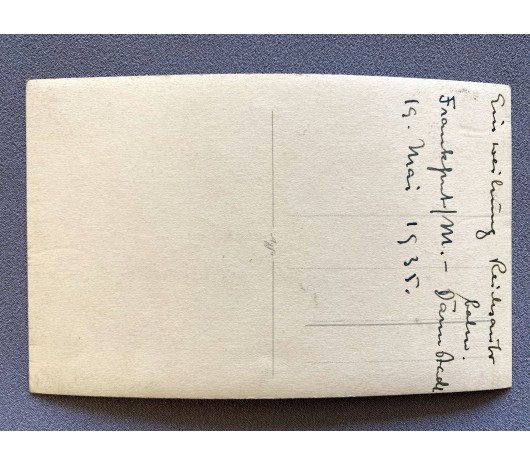 Einweihung Reichsauto
bahn.
Frankfurt/M. - Darmstadt
19. Mai 1935.